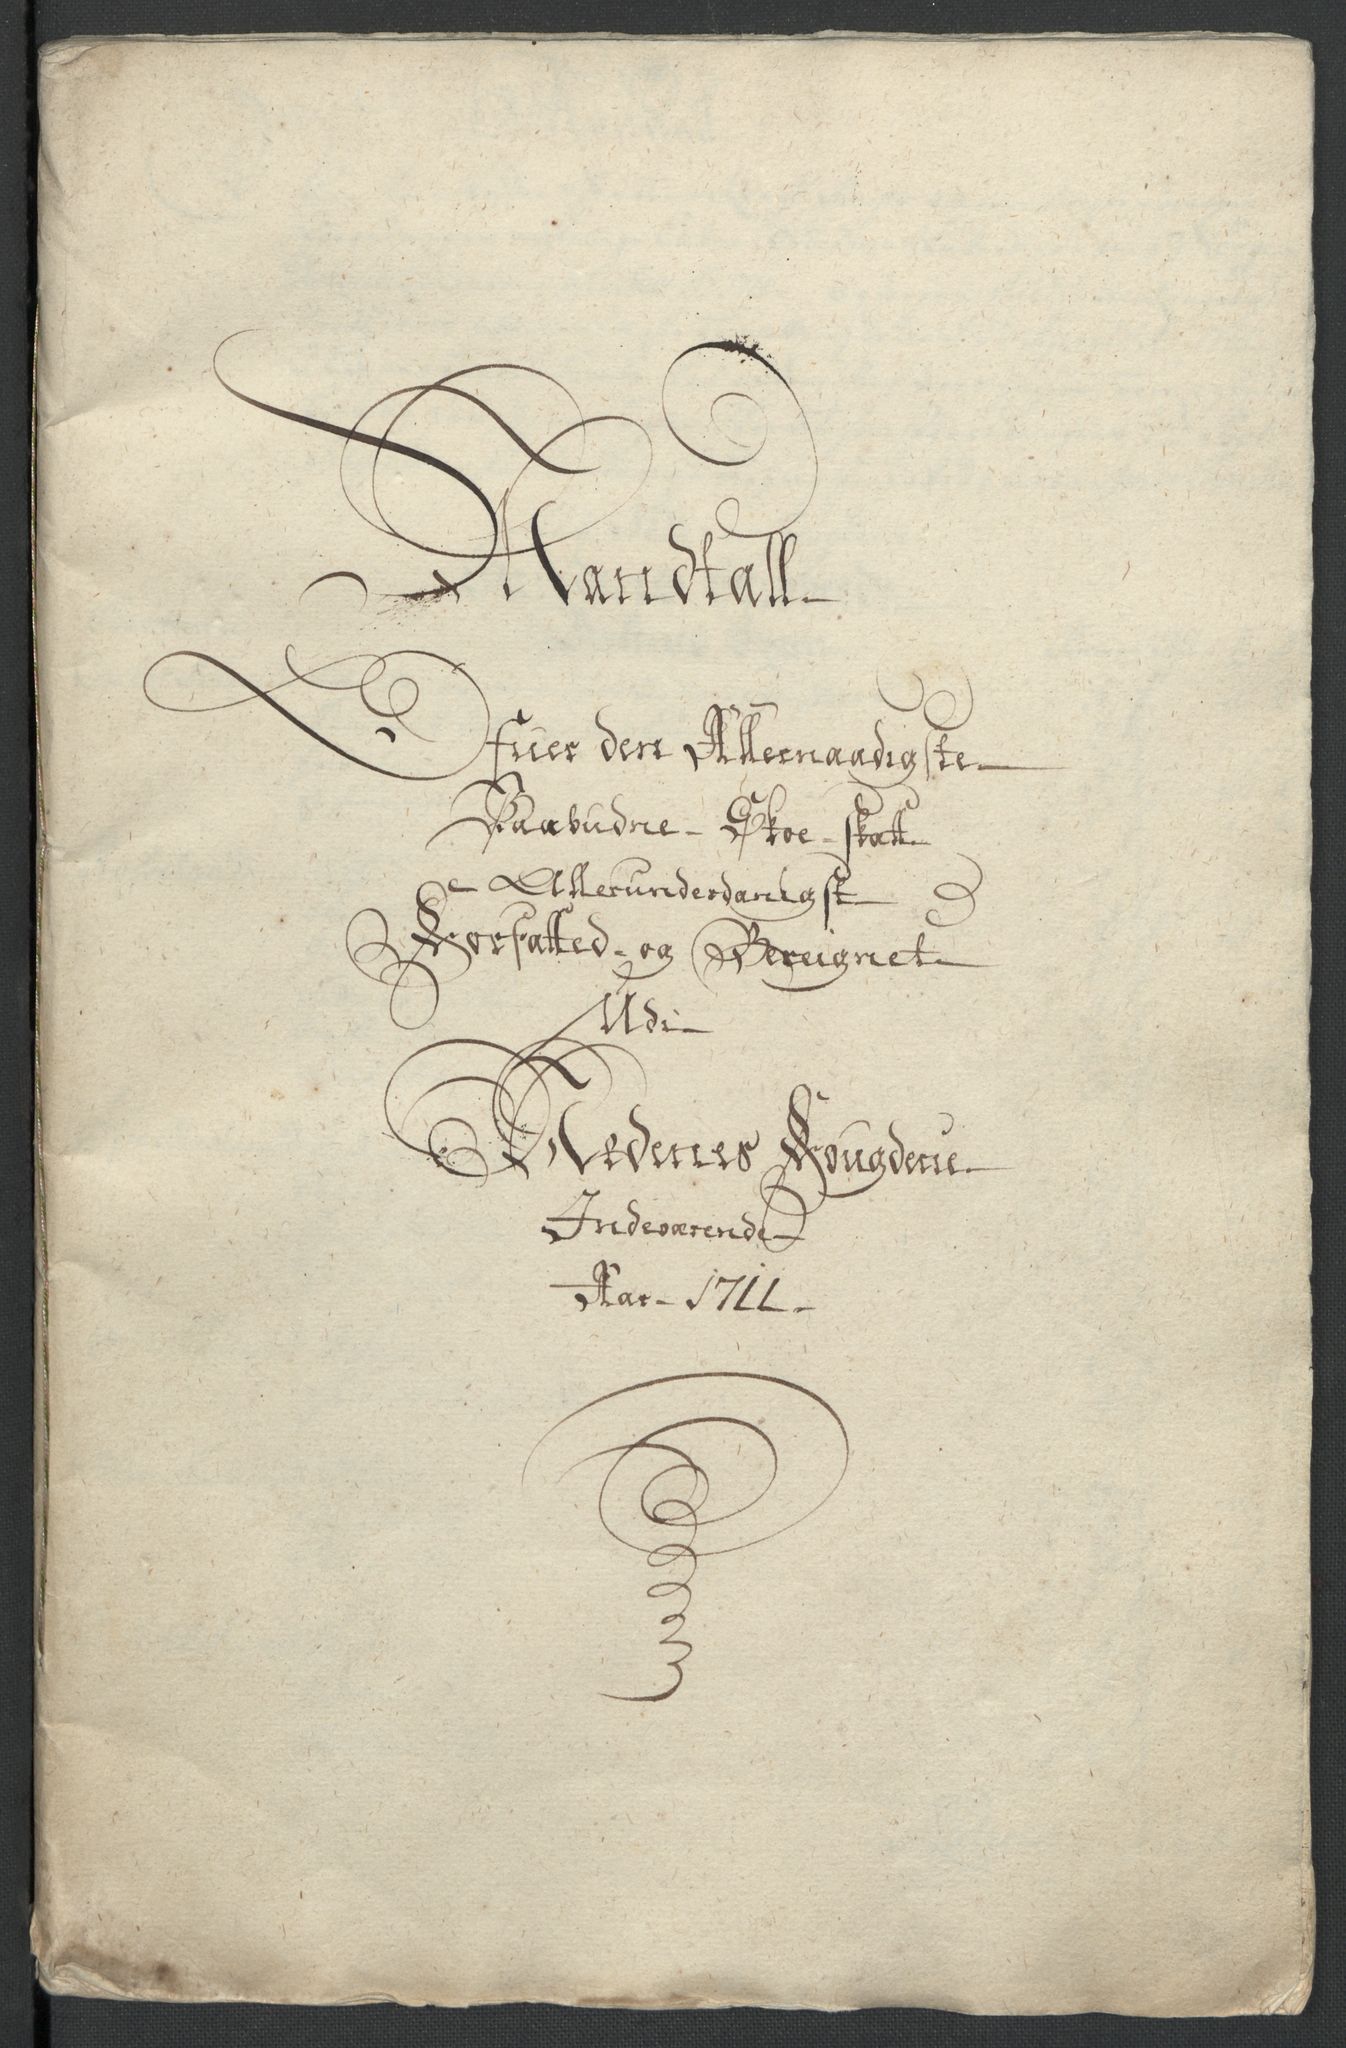 Mandtall
Ofuer den Allernaadigste
Paabudne Skoe-skatt
Allerunderdanigst
Forfatted og Beregnet
Udi
Nedenes Fougderie
Indeværende
Aar 1711